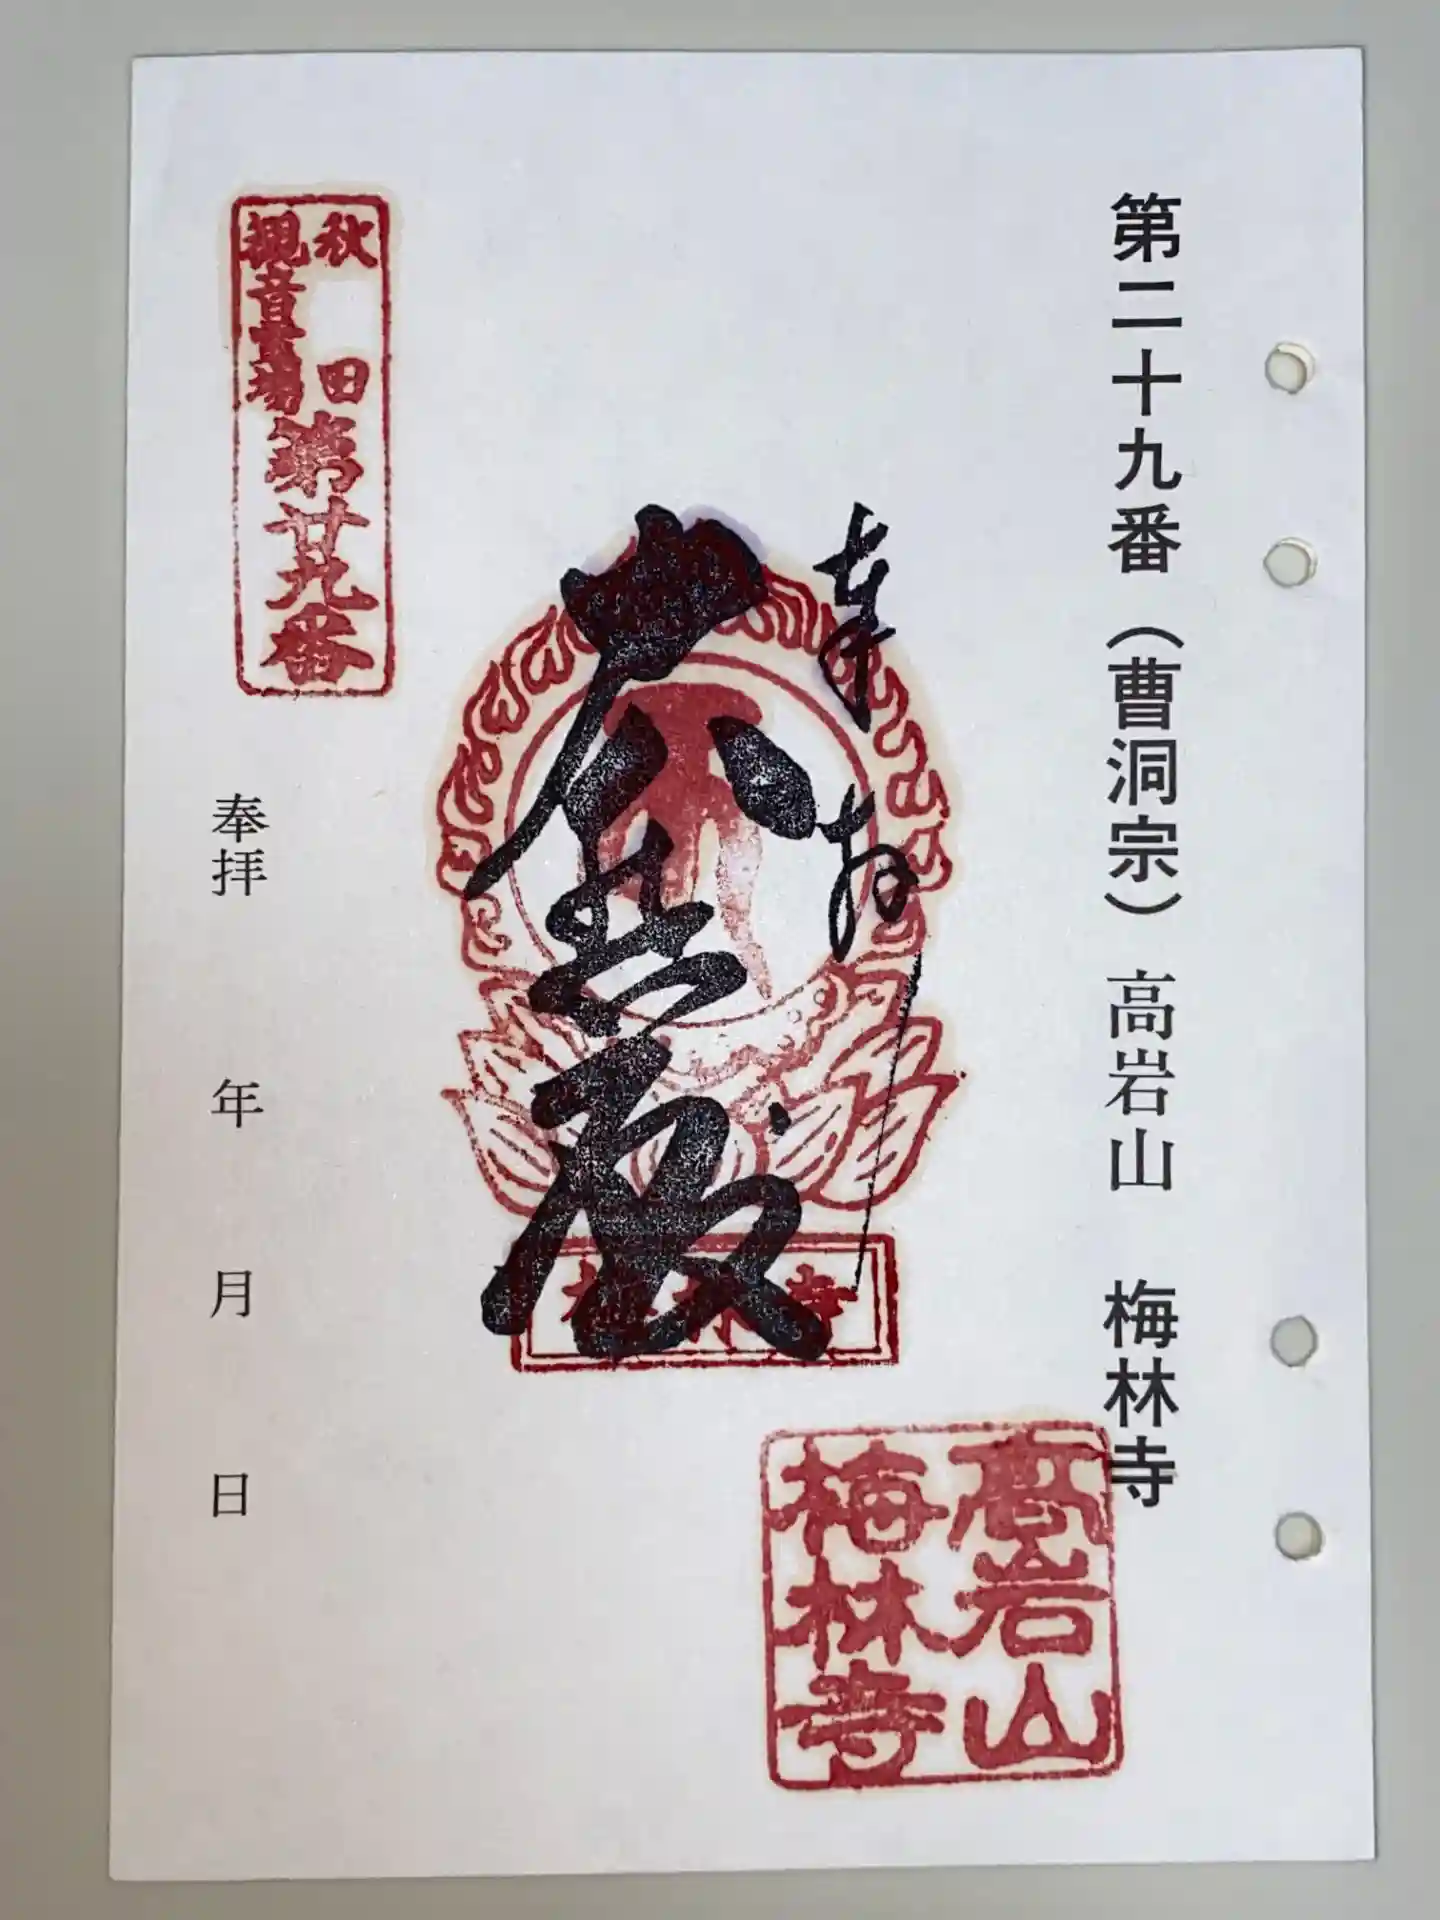 第二十九番(曹洞宗)高岩山 梅林寺
奉拝
大悲殿
梅林寺
高岩山
梅林寺
秋田
観音霊場
第廿九番
奉拝 年 月 日